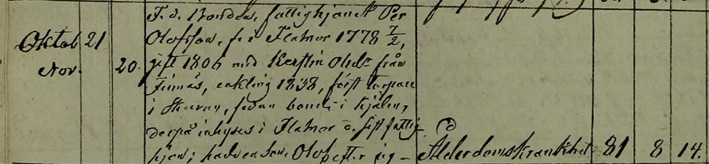 F.d. Bonden, fattighjonet Per
Oktob 21 Olofsson, f. i Flatnor 1778 7/2,
Nov. 20. gift 1806 med Kerstin Olsdr från
Finnäs, enkling 1838, först torpare
i Skuran, sedan bonde i
derpå inhyses i Flatnor o. sist fattig-
hjon; hade en son, Olof efter sig – Ålderdomskrankhet. 81 8 14.